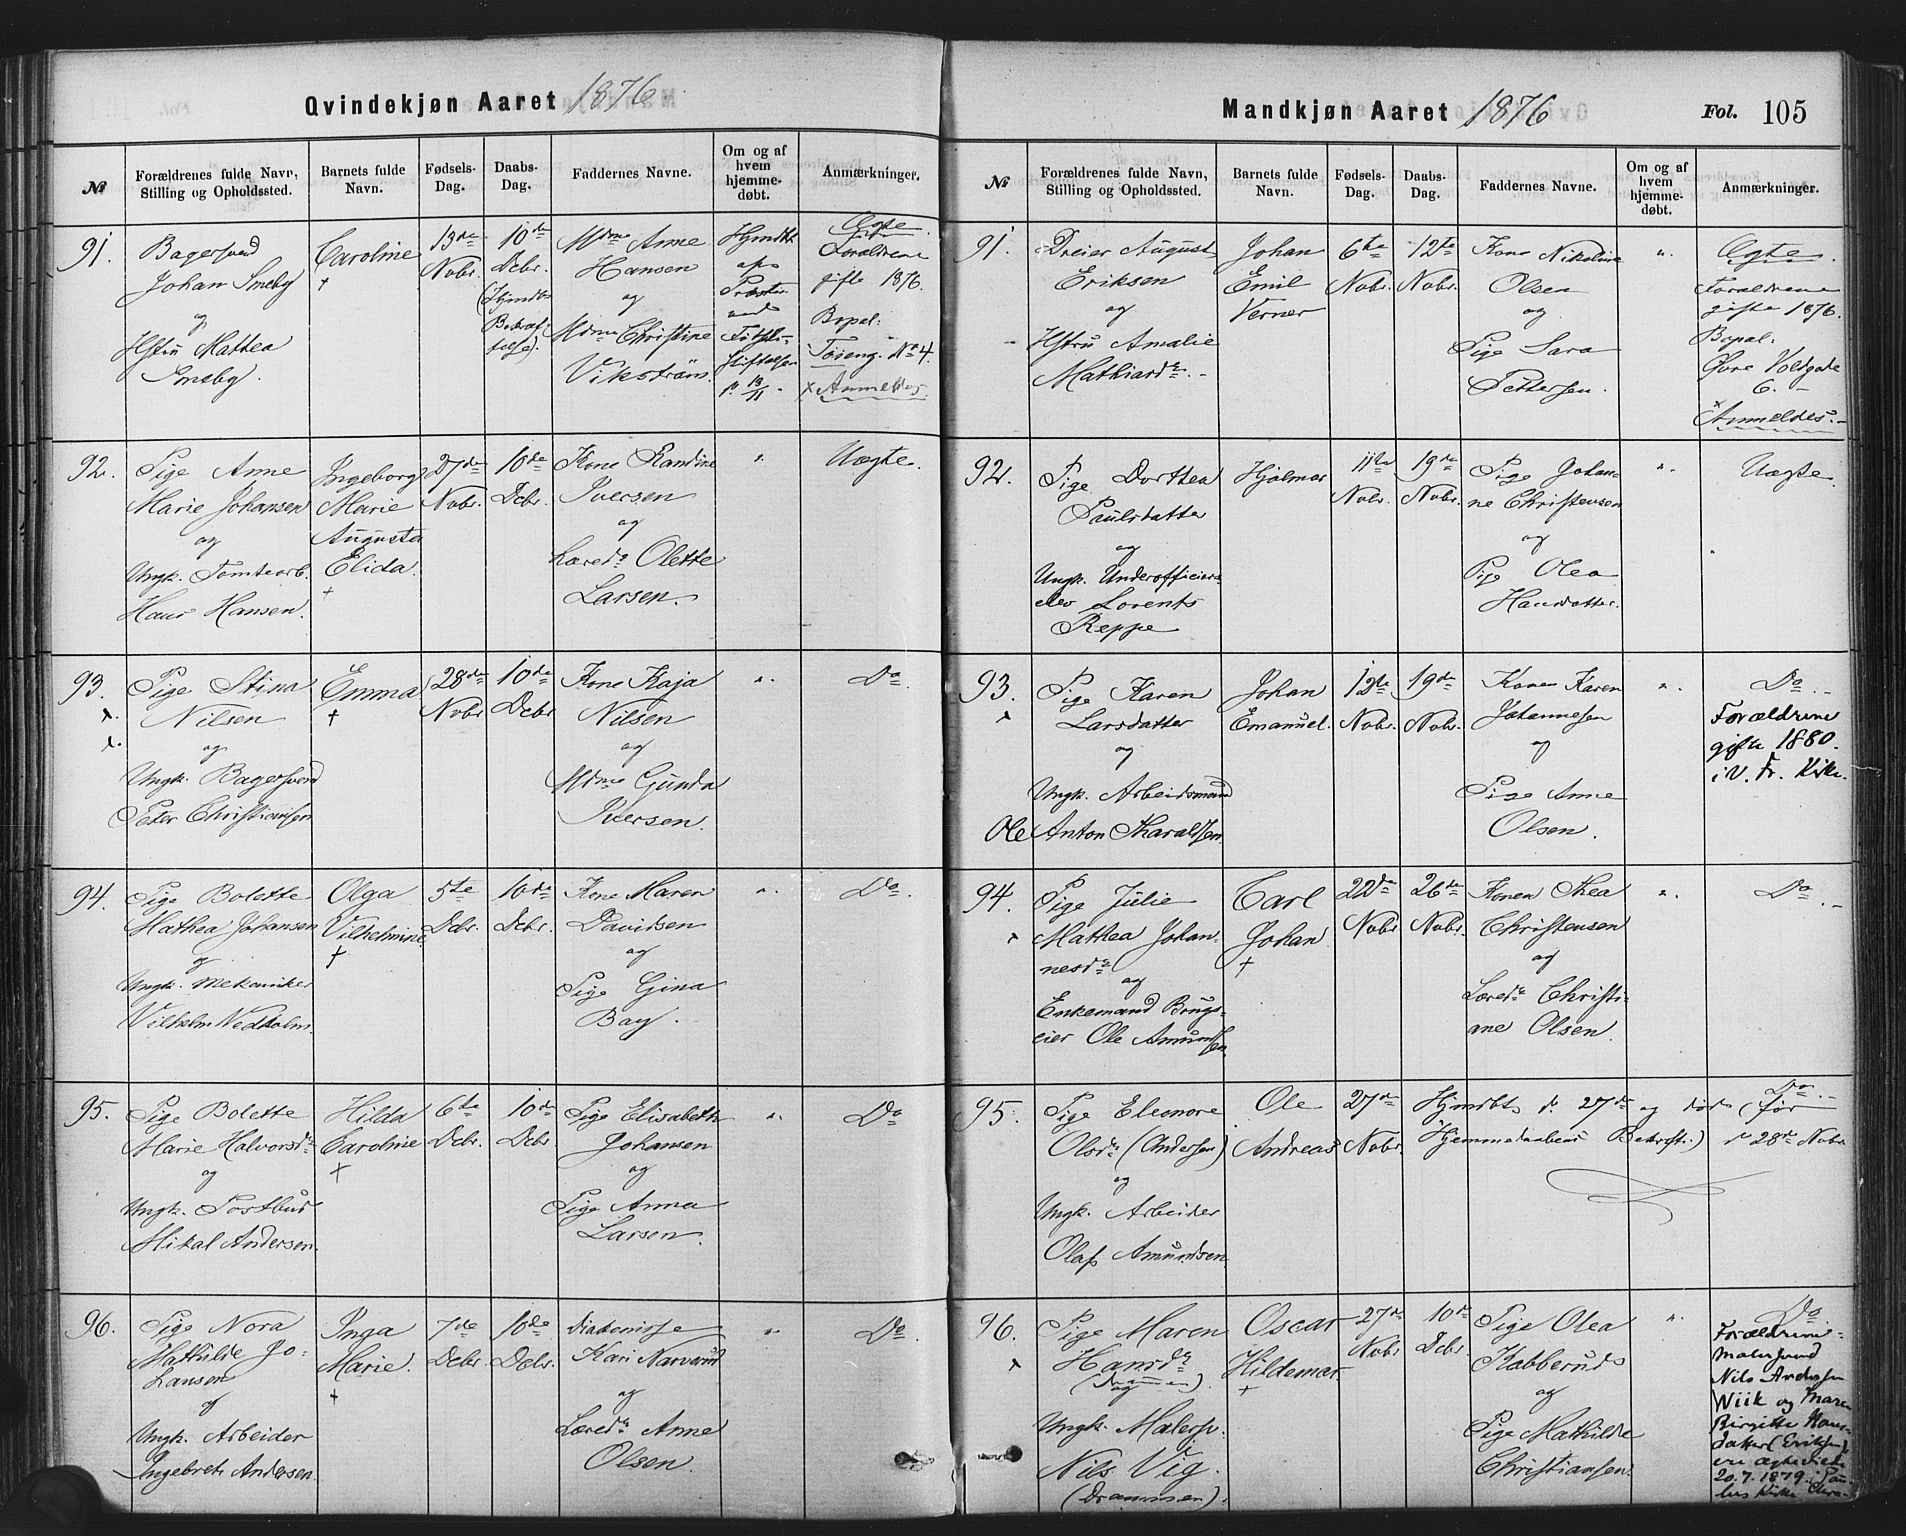 Qvindekjøn Aaret 1876.
№
Forældrenes fulde Navn, Stilling og Opholdssted.
Barnets fulde Navn.
Fødsels-Dag.
Daabs-Dag.
Faddernes Navne.
Om og af hvem hjemme-døbt.
Anmærkninger.
91.
Bagersvend
Johan Smeby
og
Hstru Mathea
Smeby.
Caroline
+
13de
Novbr.
10de
Dcbr.
(Hjmdbs
Bekræf-
telse).
Mdme Anne
Hansen
og
Mdme Christine
Vikström.
Hjmdbt
af
og
Fødsels-
stiftelsen
p. 13/11
Ægte.
Forældrene
gifte 1876.
Bopæl:
Tøieng. No 4.
x Anmeldes.
92.
Pige Anne
Marie Johansen
og
Ungk. Tomtearb.
Hans Hansen.
Ingeborg
Marie
Augusta
Elida.
+
27de
Novbr.
10de
Dcbr.
Kone Randine
Iversen
og
Læreds Olette
Larsen.
".
Uægte.
93.
x.
x.
Pige Stina
Nilsen
og
Ungk. Bagersvend
Peter Christiansen
Emma
+
28de
Novbr
10de
Dcbr
Kone Kaja
Nilsen
og
Mdme Gunda
Iversen.
".
Do.
94.
Pige Bolette
Mathea Johansen
og
Ungk. Mekaniker
Vilhelm Nedholm.
Olga
Vilhelmine
+
5te
Dcbr.
10de
Dcbr.
Kone Maren
Davidsen
og
Pige Gina
Bay.
".
Do.
95.
Pige Bolette
Marie Halvorsdr
og
Ungk. Postbud
Mikal Andersen.
Hilda
Caroline
+
6te
Dcbr.
10de
Dcbr.
Pige Elisabeth
Johansen
og
Pige Anna
Larsen.
".
Do
96.
Pige Nora
Mathilde Jo-
hansen
og
Ungk. Arbeider
Ingebret Andersen.
Inga
Marie.
+
7de
Dcbr.
10de
Dcbr.
Diakonisse
Kari Narverud
og
Læreds Anne
Olsen.
".
Do.
Mandkjøn Aaret 1876
Fol. 105
№
Forældrenes fulde Navn, Stilling og Opholdssted.
Barnets fulde Navn.
Fødsels-Dag.
Daabs-Dag.
Faddernes Navne.
Om og af hvem hjemme-døbt.
Anmærkninger.
91.
Dreier August
Eriksen
og
Hstru Amalie
Mathiasdr.
Johan
Emil
Verner
6te
Novbr.
12te
Novbr.
Kone Nikoline
Olsen
og
Pige Sara
Pettersen.
".
Ægte.
Forældrene
gifte 1876.
Bopæl:
Øvre Voldgade
6.
x Anmeldes.
92.
Pige Dorthea
Paulsdatter
og
Ungk. Underofficiers-
elev Lorents
Reppe
Hjalmar
11te
Novbr.
19de
Novbr.
Pige Johan-
ne Christensen
og
Pige Olea
Hansdatter.
".
Uægte.
93.
x
Pige Karen
Larsdatter
og
Ungk. Arbeidsmand
Ole Anton Tharaldsen.
Johan
Emanuel.
12te
Novbr.
19de
Novbr.
Konen Karen
Johannesen
og
Pige Anne
Olsen.
".
Do.
Forældrene
gifte 1880.
i V. Fr. Kirke.
94.
x
Pige Julie
Mathea Johan-
nesdr
og
Enkemand Brugs-
eier Ole Amundsen
Carl
Johan
+
22de
Novbr
26de
Novbr.
Konen Thea
Christensen
og
Læreds Christi-
ane Olsen.
".
Do.
95.
Pige Eleonore
Olsdr (Andersen)
og
Ungk. Arbeider
Olaf Amundsen
Ole
Andreas
27de
Novbr.
Hjmdbt d. 27de og død (før
Hjemmedaabens Bekræft.) d 28de Novbr
Do.
96.
x
Pige Maren
Hansdr
(Drammen).
og
Ungk. Malersv.
Nils Vig.
(Drammen).
Oscar
Hildemar.
+
27de
Novbr
10de
Dcbr.
Pige Olea
Kobberud
og
Pige Mathilde
Christiansen.
".
Do.
Forældrene
Malersvend
Nils Andersen
Wiik og Maren
Birgitte Hans-
datter (Eriksen)
ere ægteviet
20.7.1879. i Pau-
lus Kirke